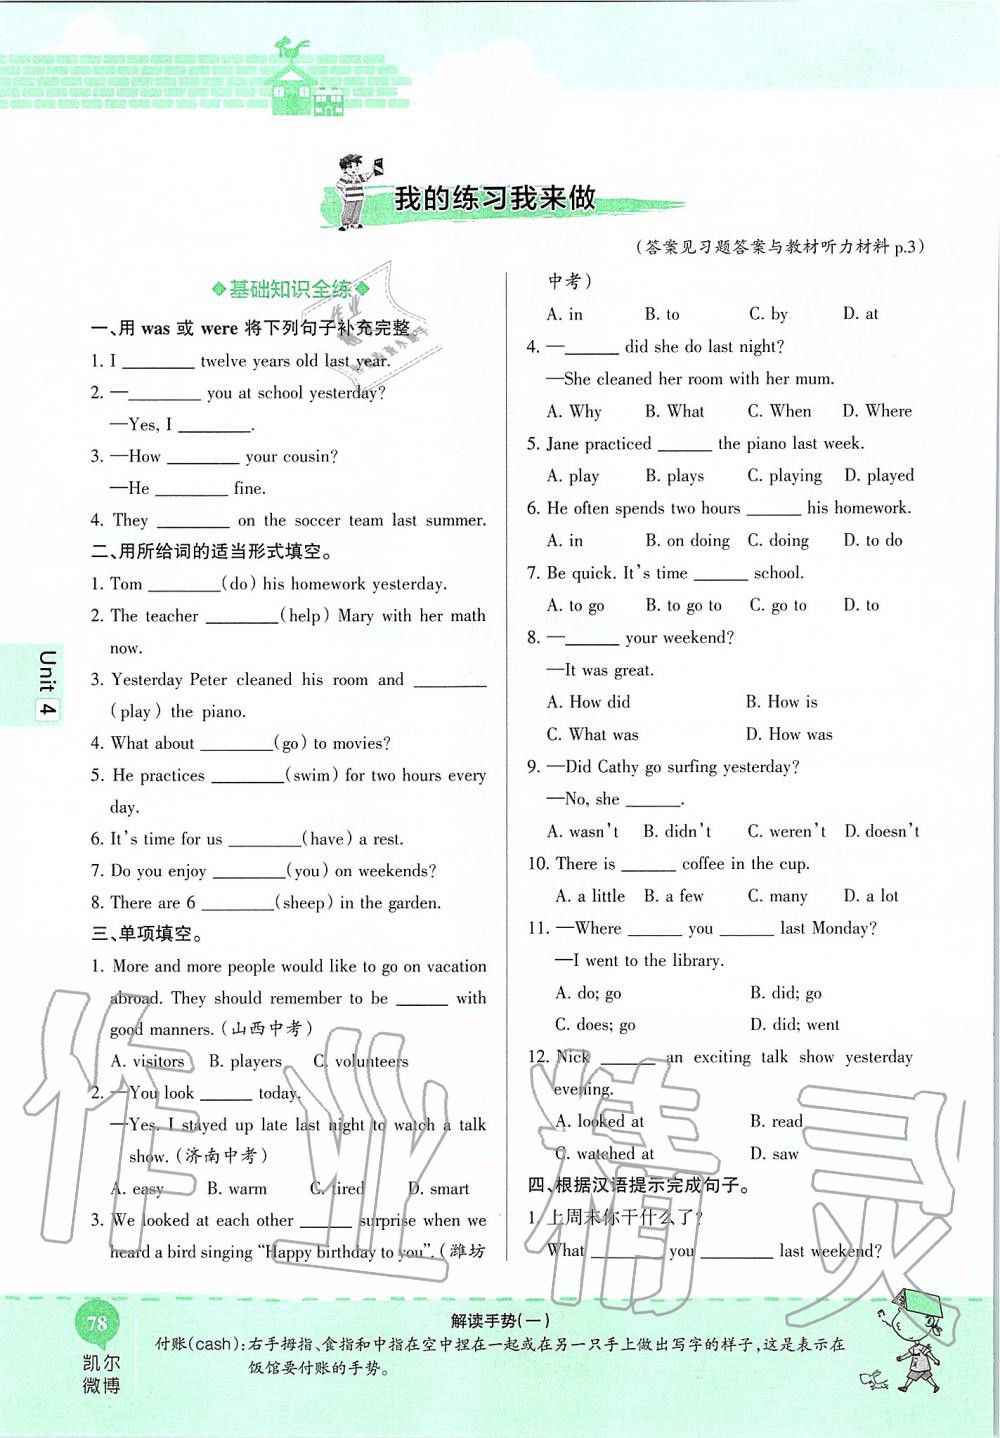 我的练习我来做
(答案见习题答案与教材听力材料 p.3)
基础知识全练
一、用 was 或 were 将下列句子补充完整
1. I ________ twelve years old last year.
2. —________ you at school yesterday?
—Yes, I ________.
3. —How ________ your cousin?
—He ________ fine.
4. They ________ on the soccer team last summer.
二、用所给词的适当形式填空。
1. Tom ________(do) his homework yesterday.
2. The teacher ________(help) Mary with her math
now.
3. Yesterday Peter cleaned his room and ________
(play) the piano.
4. What about ________(go) to movies?
5. He practices ________(swim) for two hours every
day.
6. It's time for us ________(have) a rest.
7. Do you enjoy ________(you) on weekends?
8. There are 6 ________(sheep) in the garden.
三、单项填空。
1. More and more people would like to go on vacation
abroad. They should remember to be ______ with
good manners. (山西中考)
A. visitors B. players C. volunteers
2. —You look ______ today.
—Yes. I stayed up late last night to watch a talk
show. (济南中考)
A. easy B. warm C. tired D. smart
3. We looked at each other ______ surprise when we
heard a bird singing “Happy birthday to you”. (潍坊
中考)
A. in B. to C. by D. at
4. —______ did she do last night?
—She cleaned her room with her mum.
A. Why B. What C. When D. Where
5. Jane practiced ______ the piano last week.
A. play B. plays C. playing D. played
6. He often spends two hours ______ his homework.
A. in B. on doing C. doing D. to do
7. Be quick. It's time ______ school.
A. to go B. to go to C. go to D. to
8. —______ your weekend?
—It was great.
A. How did B. How is
C. What was D. How was
9. —Did Cathy go surfing yesterday?
—No, she ______.
A. wasn't B. didn't C. weren't D. doesn't
10. There is ______ coffee in the cup.
A. a little B. a few C. many D. a lot
11. —Where ______ you ______ last Monday?
—I went to the library.
A. do; go B. did; go
C. does; go D. did; went
12. Nick ______ an exciting talk show yesterday
evening.
A. looked at B. read
C. watched at D. saw
四、根据汉语提示完成句子。
1. 上周末你干什么了?
What ________ you ________ last weekend?
Unit 4
78
凯尔
微博
解读手势(一)
付账(cash):右手拇指、食指和中指在空中捏在一起或在另一只手上做出写字的样子,这是表示在
饭馆要付账的手势。
作业精灵